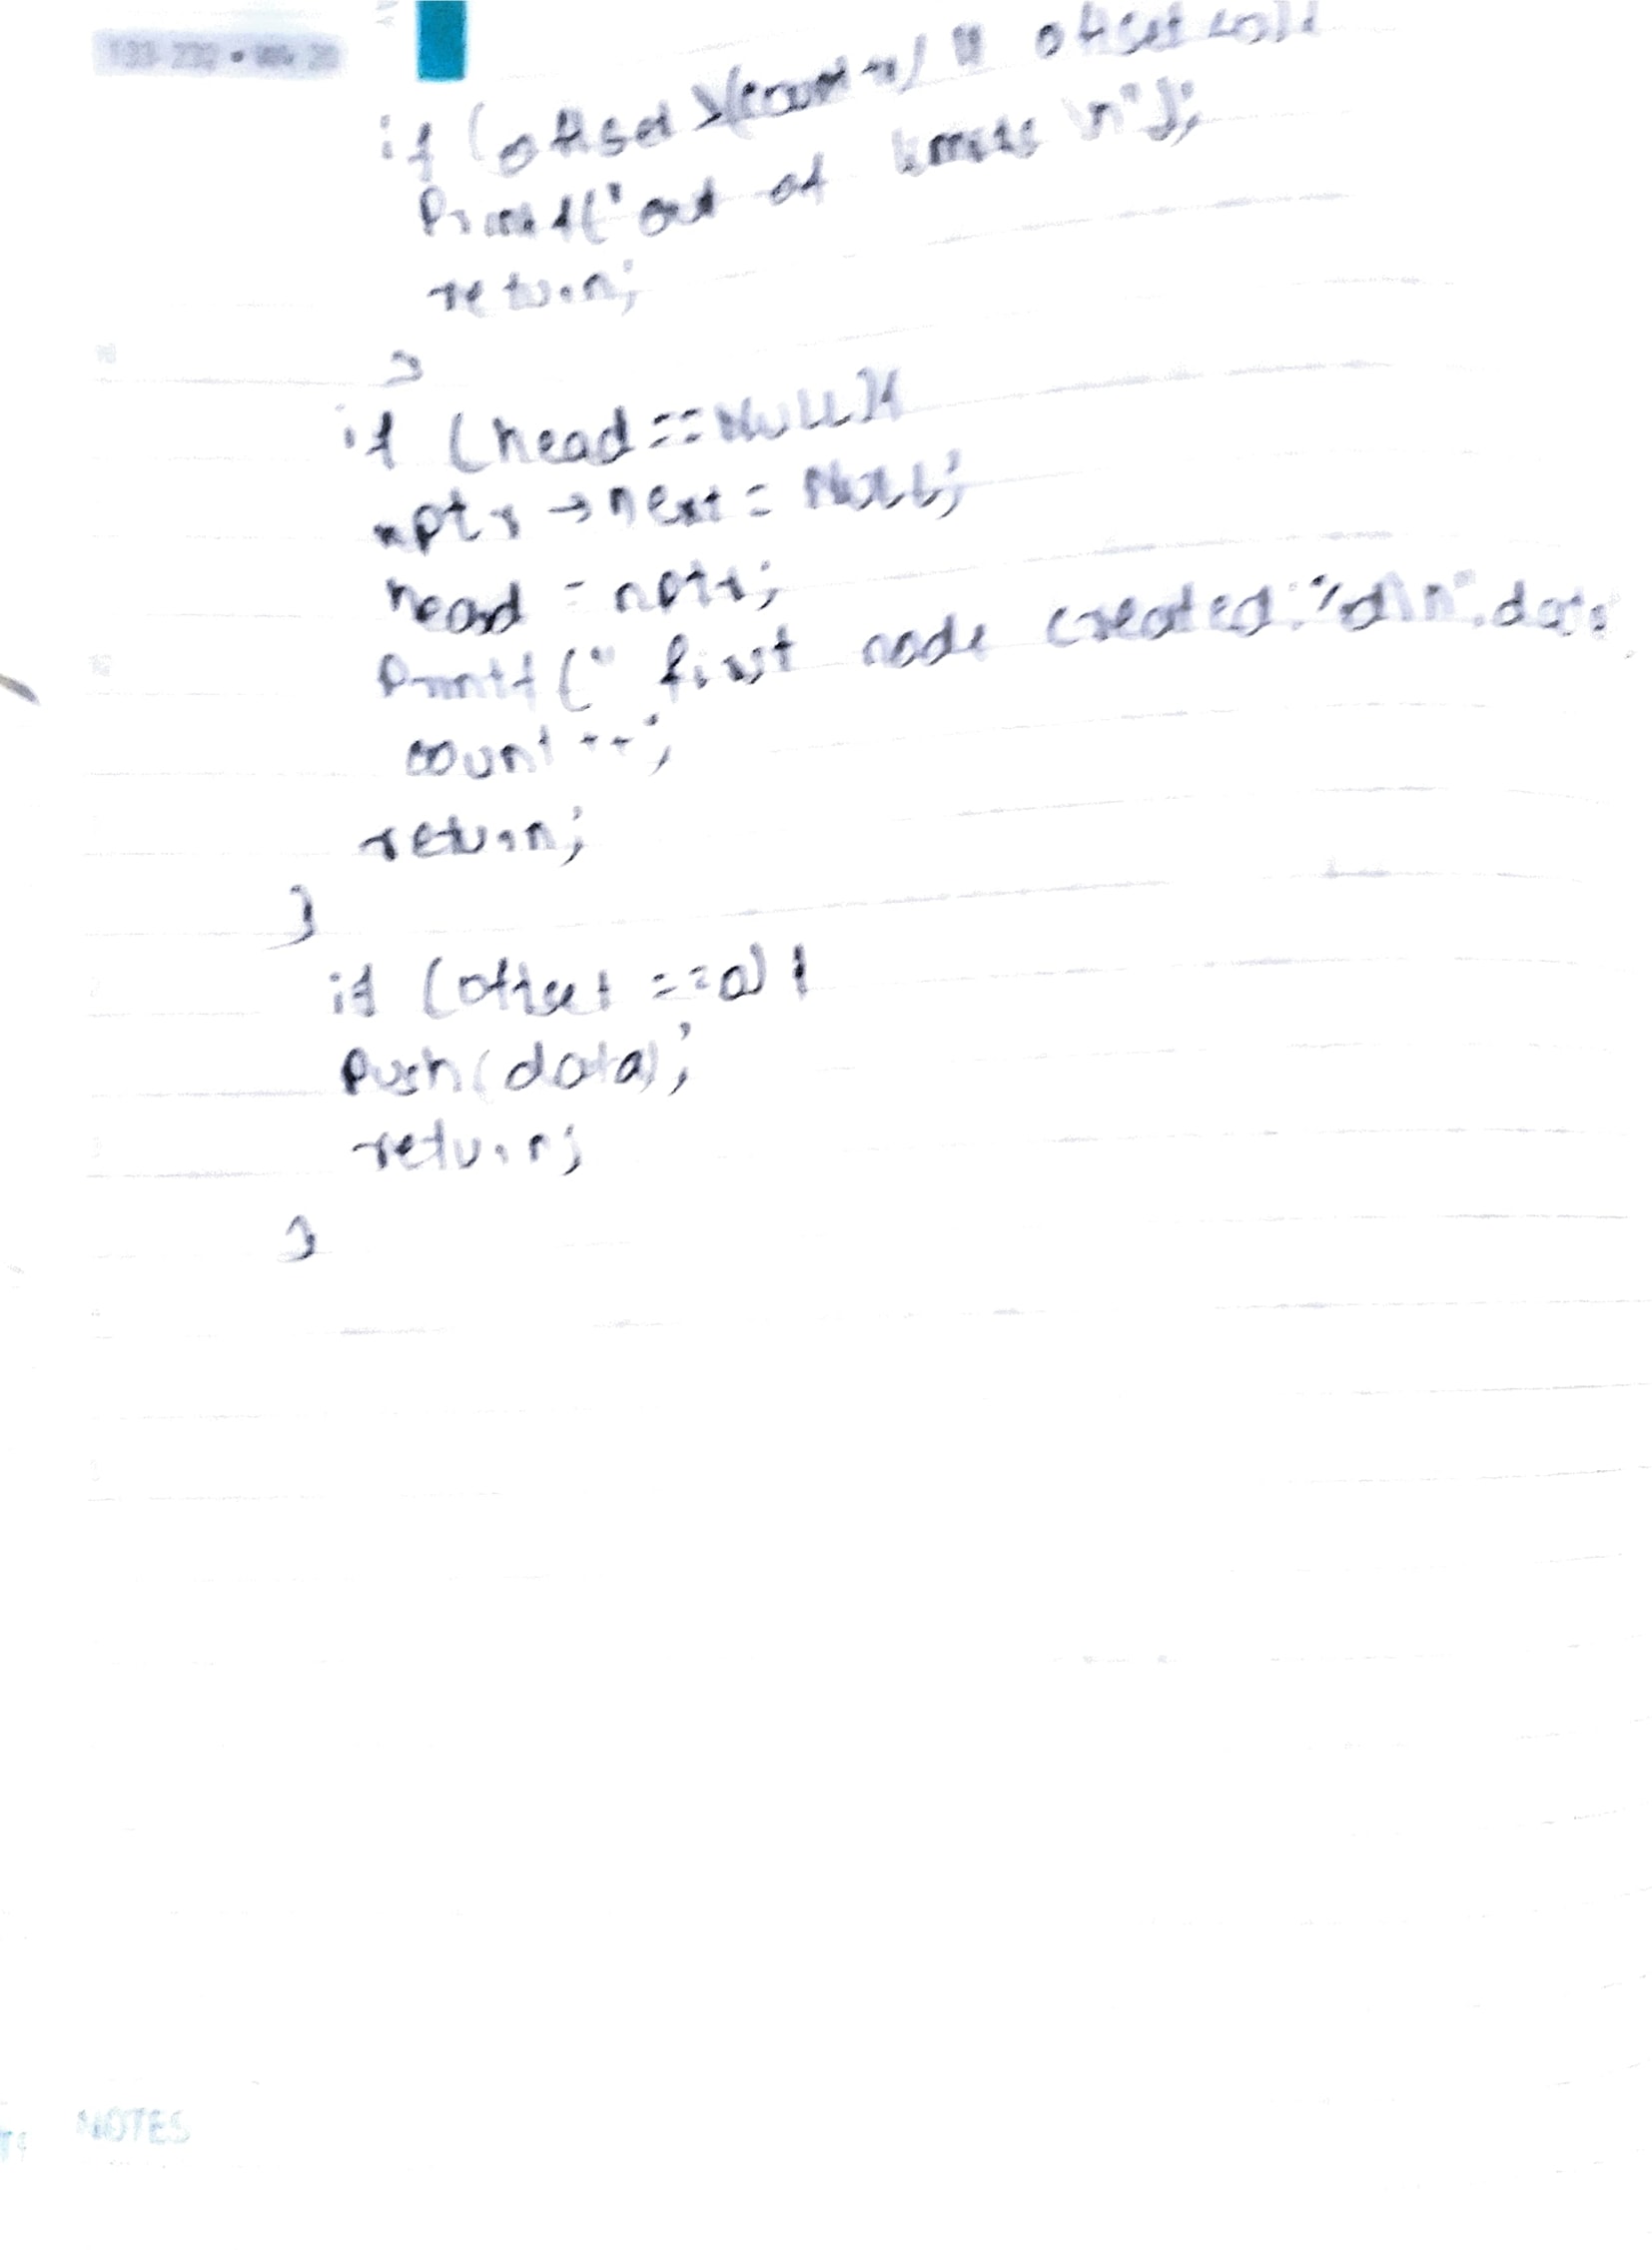 if (offset >(count-1) || offset <0){
Printf("out of limits \n");
return;
}
if (head==NULL){
nptr →next = NULL;
head = nptr;
Printf(" first node created:%d\n",data
count ++;
return;
}
if (offset ==0){
Push(data);
return;
}
NOTES